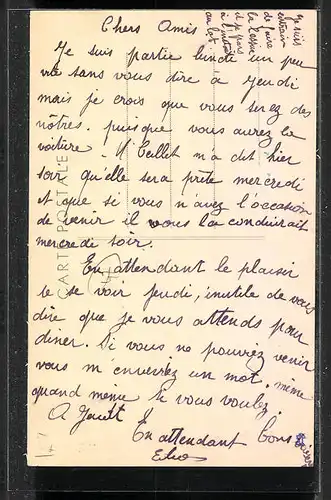 Chers Amis
Je suis partie lundi un peu
vite sans vous dire a Jeudi
mais je crois que vous serez des
nôtres. puisque vous aurez la
voiture. M m'a dit hier
soir qu'elle sera prête mercredi
et que si vous n'avez l'occasion
de venir il vous la conduirait
mercredi soir.
En attendant le plaisir
de se voir jeudi, inutile de vous
dire que je vous attends pour
diner. Si vous ne pouvez venir
vous m'enverrez un mot, même
quand même si vous voulez.
A
En attendant bons
baisers
je suis
entrain
de faire
la
et je pars
à
au lit.
CARTE POSTALE